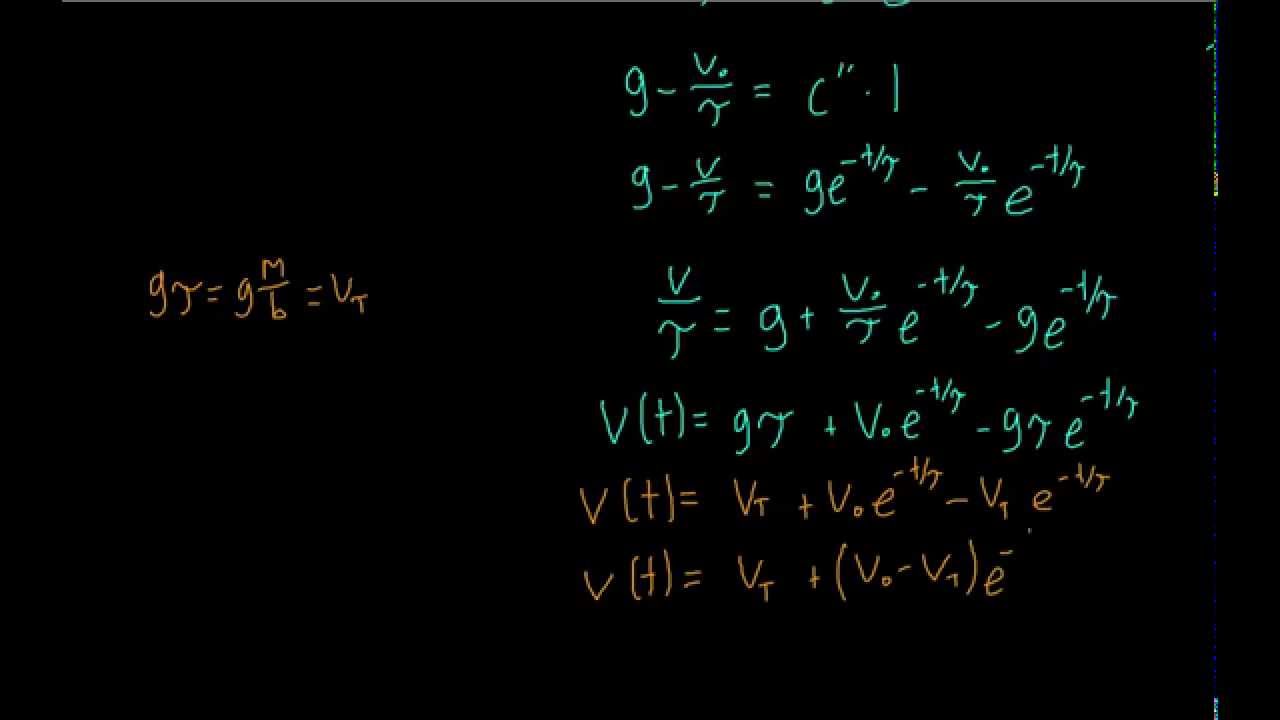 g - v₀/τ = c'' · 1
g - v/τ = ge^(-t/τ) - v₀/τ e^(-t/τ)
gτ = g m/b = v_T
v/τ = g + v₀/τ e^(-t/τ) - ge^(-t/τ)
v(t) = gτ + v₀e^(-t/τ) - gτe^(-t/τ)
v(t) = v_T + v₀e^(-t/τ) - v_T e^(-t/τ)
v(t) = v_T + (v₀ - v_T)e^-